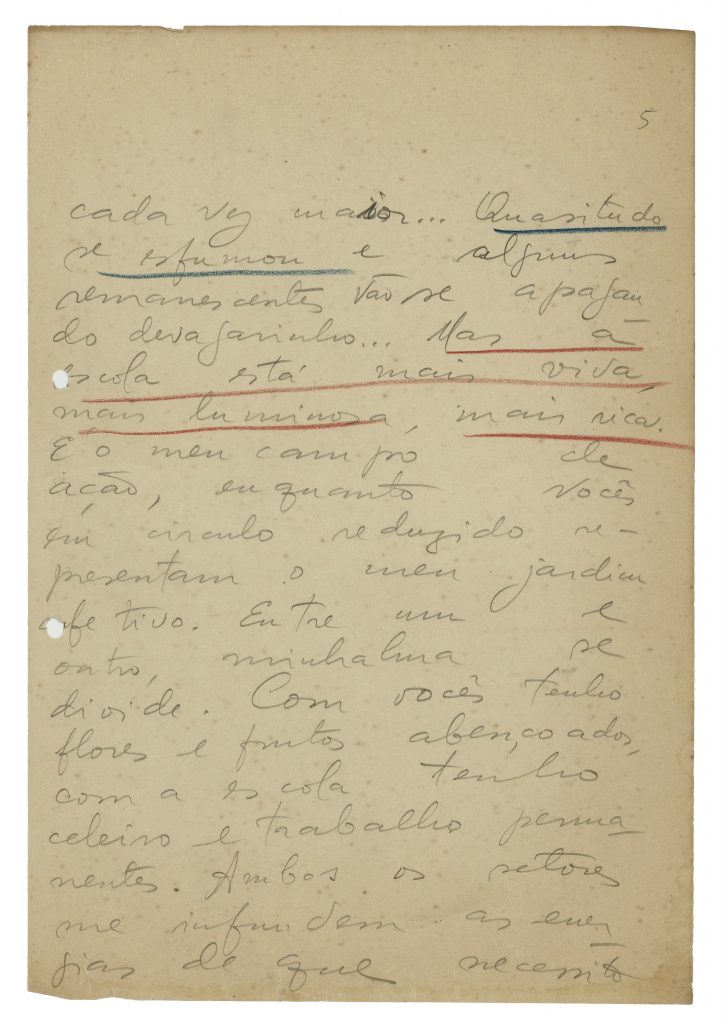 5
cada vez maior... Quasi tudo
se esfumou e alguns
remanescentes vão se apagan
do devagarinho... Mas a
escola está mais viva,
mais luminosa, mais rica.
E o meu campo de
ação, enquanto vocês
em circulo reduzido re-
presentam o meu jardim
afetivo. Entre um e
outro, minhalma se
divide. Com vocês tenho
flores e frutos abençoados,
com a escola tenho
celeiro e trabalho perma-
nentes. Ambos os setores
me infundem as ener
gias de que necessito